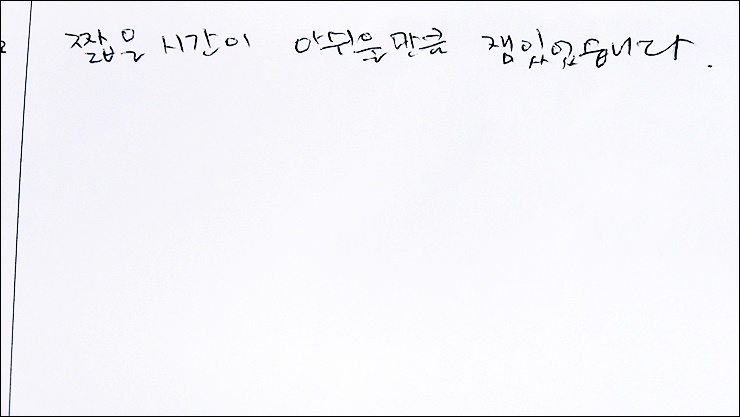 짧은 시간이 아쉬울만큼 잼있었습니다.